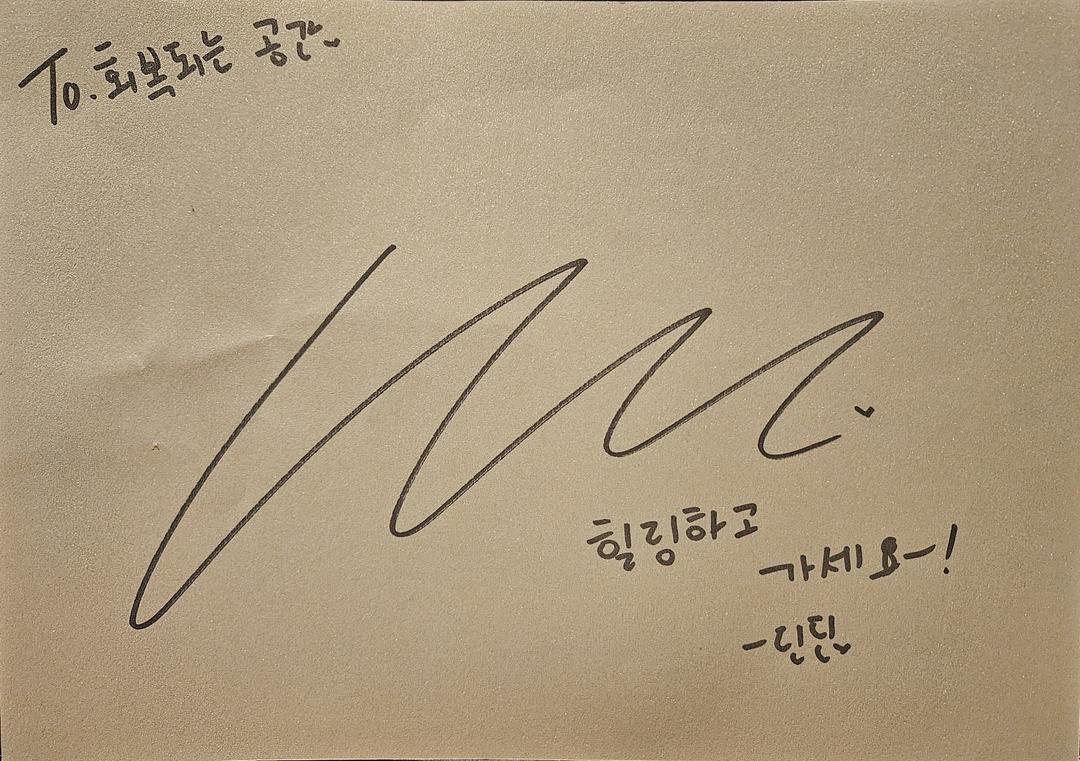 To. 회복되는 공간
힐링하고
가세요~!
-딘딘